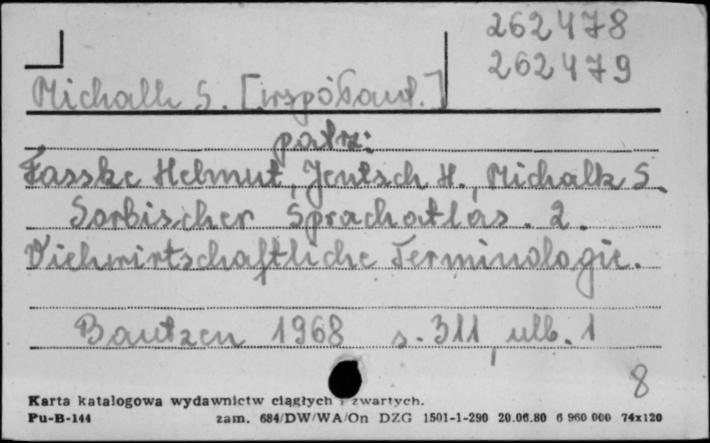 262478
262479
Michalk S. [współaut.]
patrz:
Fasske Helmut, Jentsch H., Michalk S.
Sorbischer Sprachatlas. 2.
Viehwirtschaftliche Terminologie.
Bautzen 1968 s. 311, ulb. 1
8
Karta katalogowa wydawnictw ciągłych i zwartych.
Pu-B-144 zam. 684/DW/WA/On DZG 1501-1-290 20.06.80 6 960 000 74x120